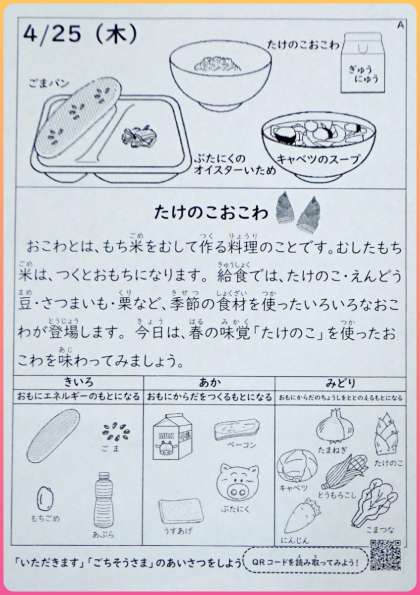 A
4/25（木）
たけのこおこわ
ぎゅう
にゅう
ごまパン
ぶたにくの
オイスターいため
キャベツのスープ
たけのこおこわ
おこわとは、もち米をむして作る料理のことです。むしたもち
米は、つくとおもちになります。給食では、たけのこ・えんどう
豆・さつまいも・栗など、季節の食材を使ったいろいろなおこ
わが登場します。今日は、春の味覚「たけのこ」を使ったお
こわを味わってみましょう。
きいろ
おもにエネルギーのもとになる
ごま
もちごめ
あぶら
あか
おもにからだをつくるもとになる
ベーコン
ぶたにく
うすあげ
みどり
おもにからだのちょうしをととのえるもとになる
たまねぎ
たけのこ
キャベツ
とうもろこし
にんじん
こまつな
「いただきます」「ごちそうさま」のあいさつをしよう
QRコードを読み取ってみよう！